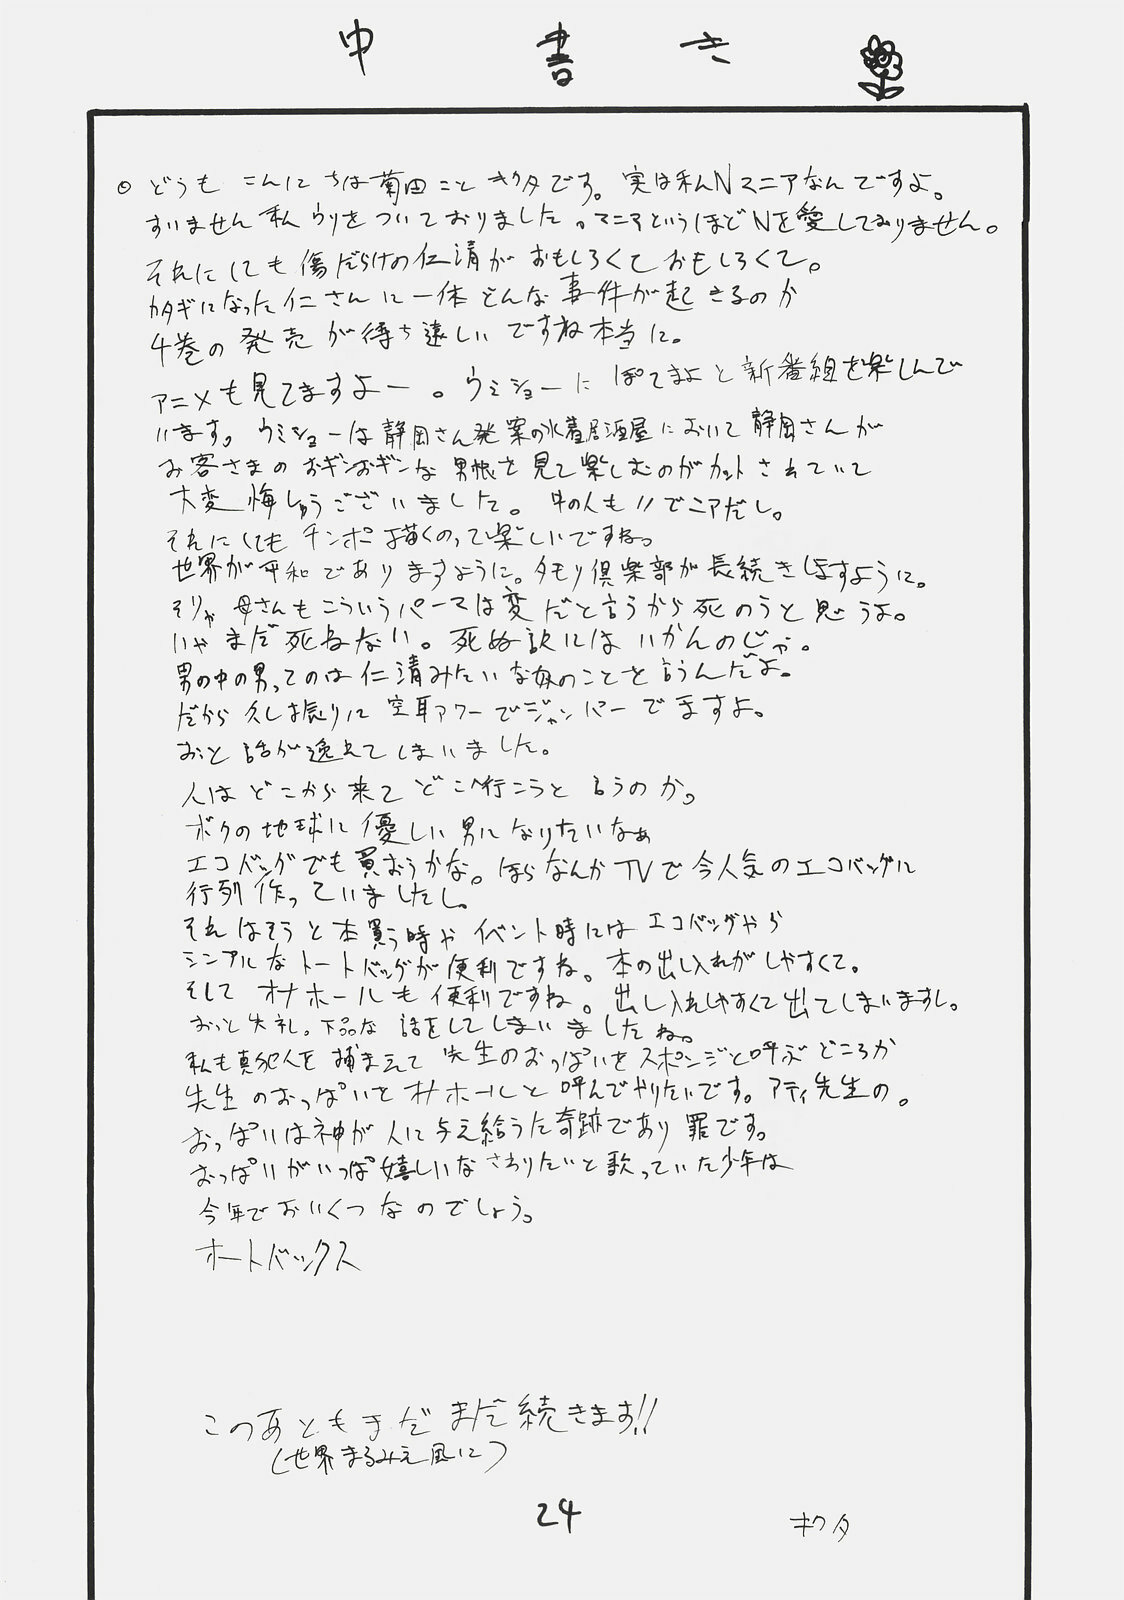 中書き
どうも こんにちは菊田こと キクタです。実は私Nマニアなんですよ。
すいません 私 ウソをついておりました。マニアというほどNを愛しておりません。
それにしても 傷だらけの仁清が おもしろくておもしろくて。
カタギになった仁さんに一体どんな事件が起きるのか
4巻の発売が待ち遠しいですね本当に。
アニメも見てますよー。ウミショーに ぽてまよと新番組を楽しんで
います。ウミショーは静岡さん発案の水着居酒屋において静岡さんが
お客さまのおギンおギンな男根を見て楽しむのがカットされていて
大変悔しゅうございました。牛の人も!!でニアだし。
それにしてもチンポ描くのって楽しいですね。
世界が平和でありますように。タモリ倶楽部が長続きしますように。
そりゃ 母さんもこういうパーマは変だと言うから死のうと思うよ。
いやまだ死ねない。死ぬ訳にはいかんのじゃ。
男の中の男ってのは仁清みたいな奴のことを言うんだよ。
だから久し振りに空耳アワーでジャンパーでますよ。
おっと話が逸れてしまいました。
人はどこから来てどこへ行こうと言うのか。
ボクの地球に優しい男になりたいなぁ
エコバッグでも買おうかな。ほらなんかTVで今人気のエコバッグに
行列作っていましたし。
それはそうと本買う時やイベント時にはエコバッグやら
シンプルなトートバッグが便利ですね。本の出し入れがしやすくて。
そしてオナホールも便利ですね。出し入れしやすくて出てしまいますし。
おっと失礼。下品な話をしてしまいましたね。
私も真犯人を捕まえて先生のおっぱいをスポンジと呼ぶどころか
先生のおっぱいをオナホールと呼んでやりたいです。アティ先生の。
おっぱいは神が人に与え給うた奇跡であり罪です。
おっぱいがいっぱ嬉しいなさわりたいと歌っていた少年は
今年でおいくつなのでしょう。
オートバックス
このあともまだまだ続きます!!
(世界まるみえ風に)
24
キクタ